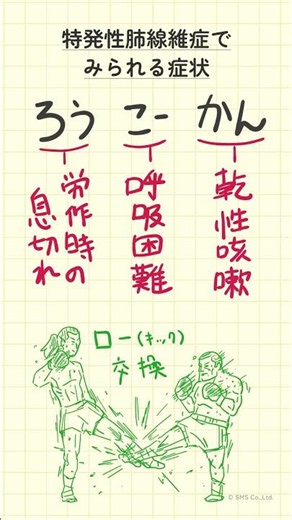 特発性肺線維症で
みられる症状
ろう こー かん
労作時の
息切れ
呼吸困難
乾性咳嗽
ロー(キック)
交換
© SMS Co.,Ltd.